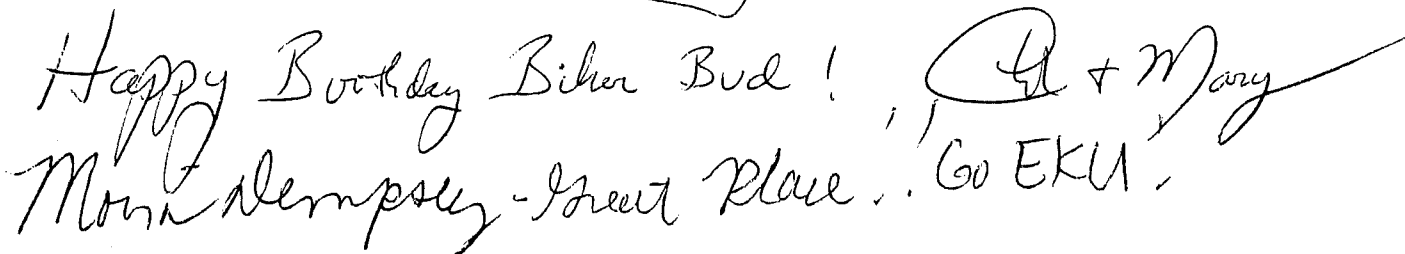 Happy Birthday Biker Bud! & Mary
Dempsey - Great Place!! Go EKU!